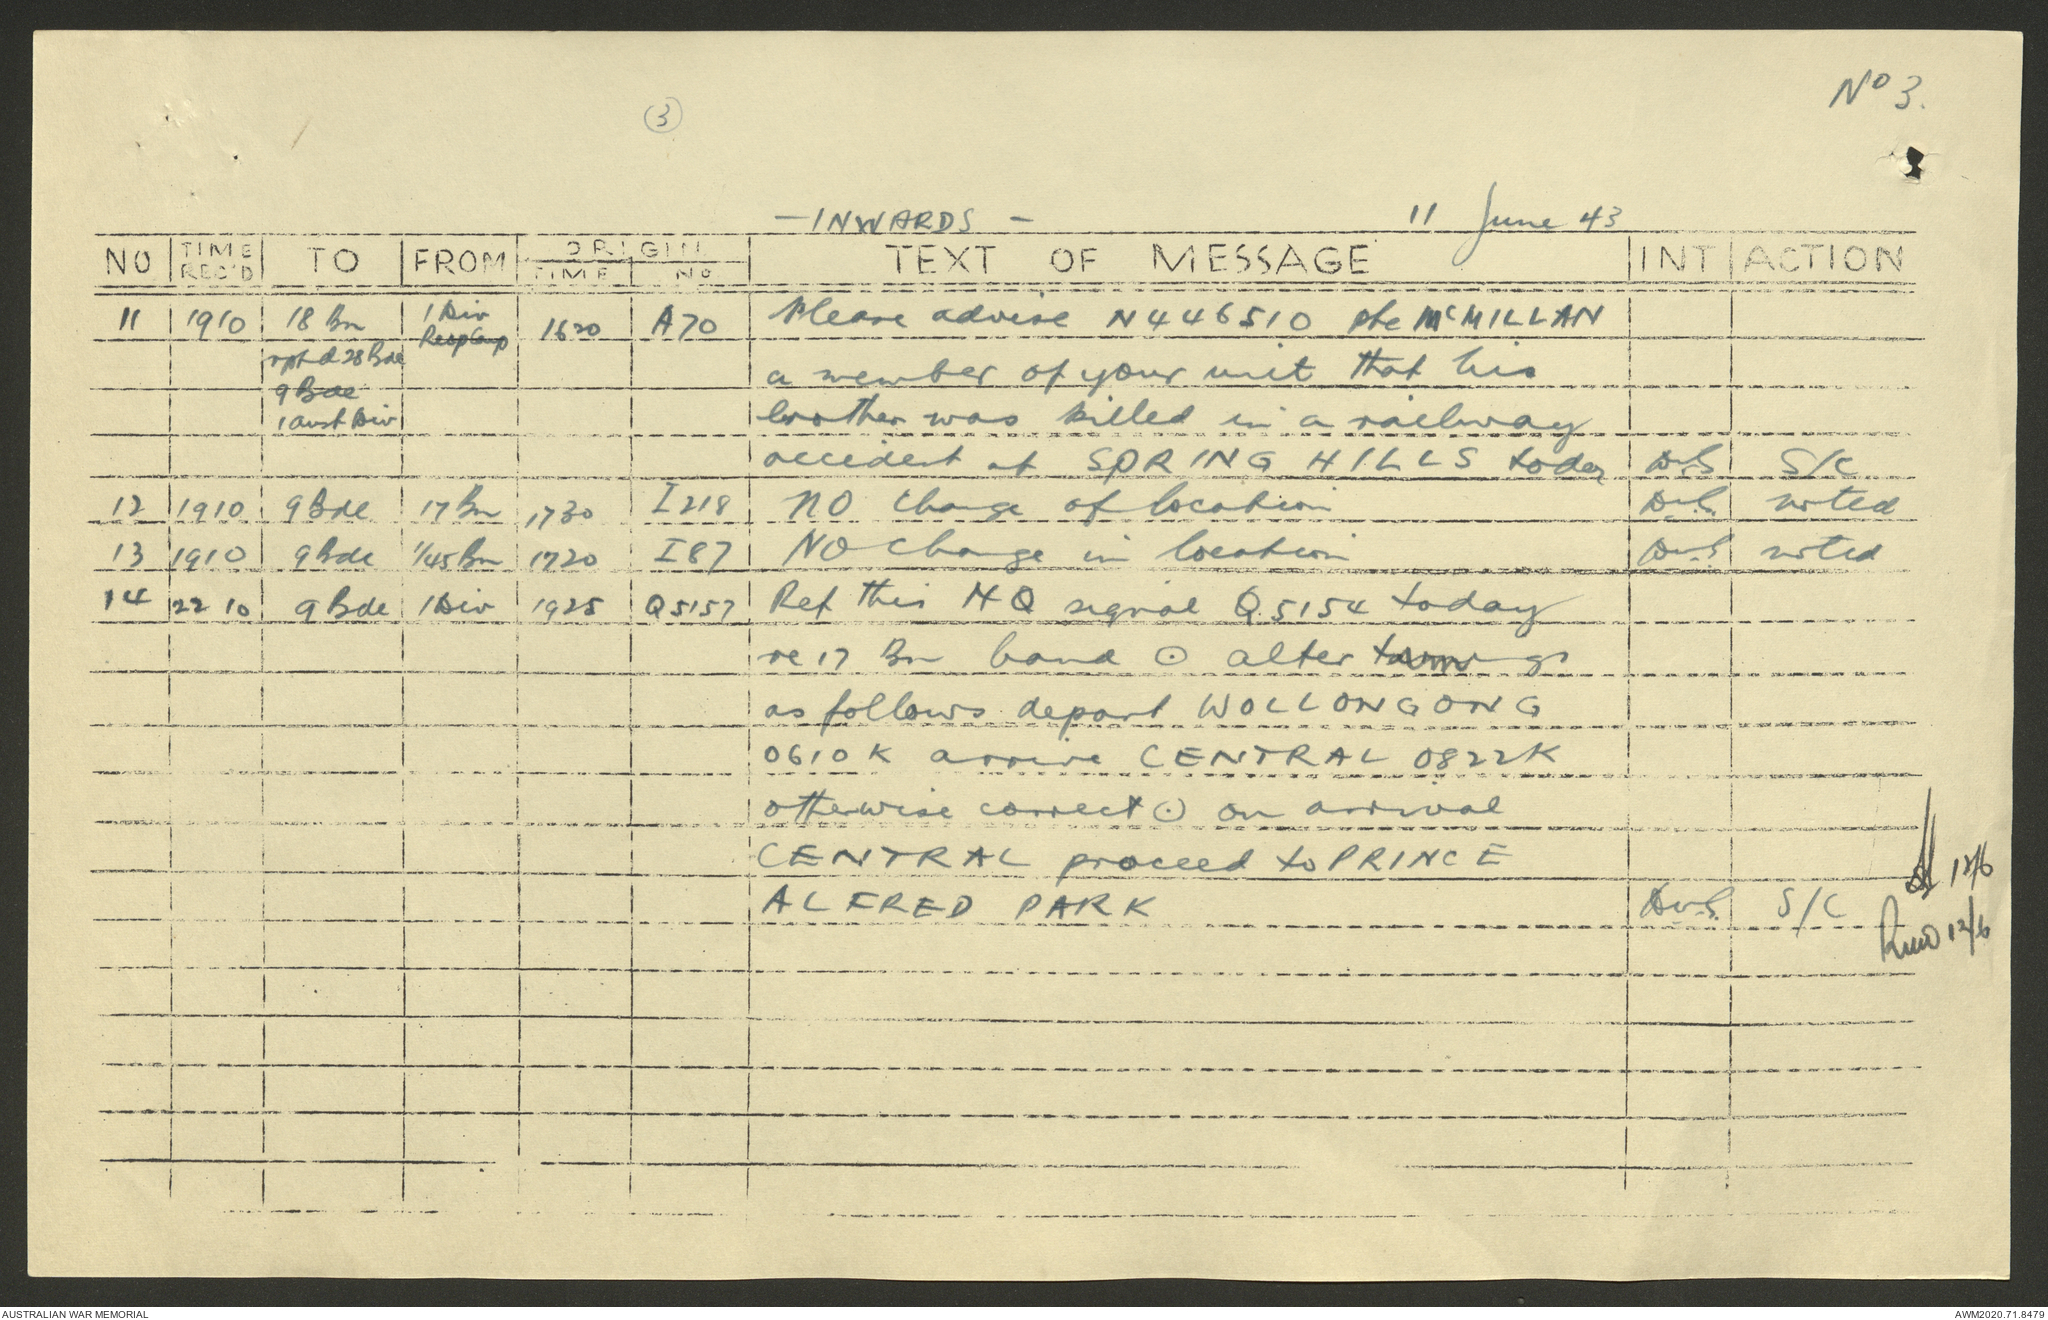 No 3.
3
- INWARDS - 11 June 43
NO TIME REC'D TO FROM ORIGIN TIME NO TEXT OF MESSAGE INT ACTION
11 1910 18 Bn 1 Div 1620 A70 Please advise N446510 Pte McMILLAN
rptd 28 Bde a member of your unit that his
9 Bde brother was killed in a railway
1 Aust Div
accident at SPRING HILLS today S/C
12 1910 9 Bde 17 Bn 1730 I218 NO change of location noted
13 1910 9 Bde 1/45 Bn 1720 I87 NO change in location noted
14 2210 9 Bde 1 Div 1925 Q5157 Ref this HQ signal Q5154 today
re 17 Bn band ⊙ alter
as follows depart WOLLONGONG
0610K arrive CENTRAL 0822K
otherwise correct ⊙ on arrival
CENTRAL proceed to PRINCE
12/6
ALFRED PARK S/C
12/6
AUSTRALIAN WAR MEMORIAL AWM2020.71.8479